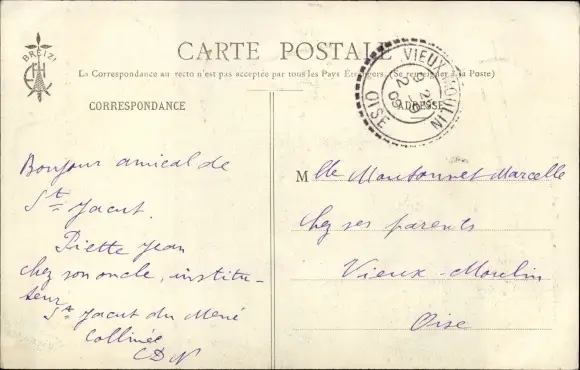 BREIZ
CARTE POSTALE
La Correspondance au recto n'est pas acceptée par tous les Pays Étrangers. (Se renseigner à la Poste)
CORRESPONDANCE
ADRESSE
VIEUX-MOULIN
OISE
Bonjour amical de
St Jacut.
Piette Jean
chez son oncle, institu-
teur
St Jacut du Mené
Collinée
CDN
Mlle Montonnet Marcelle
chez ses parents
Vieux-Moulin
Oise